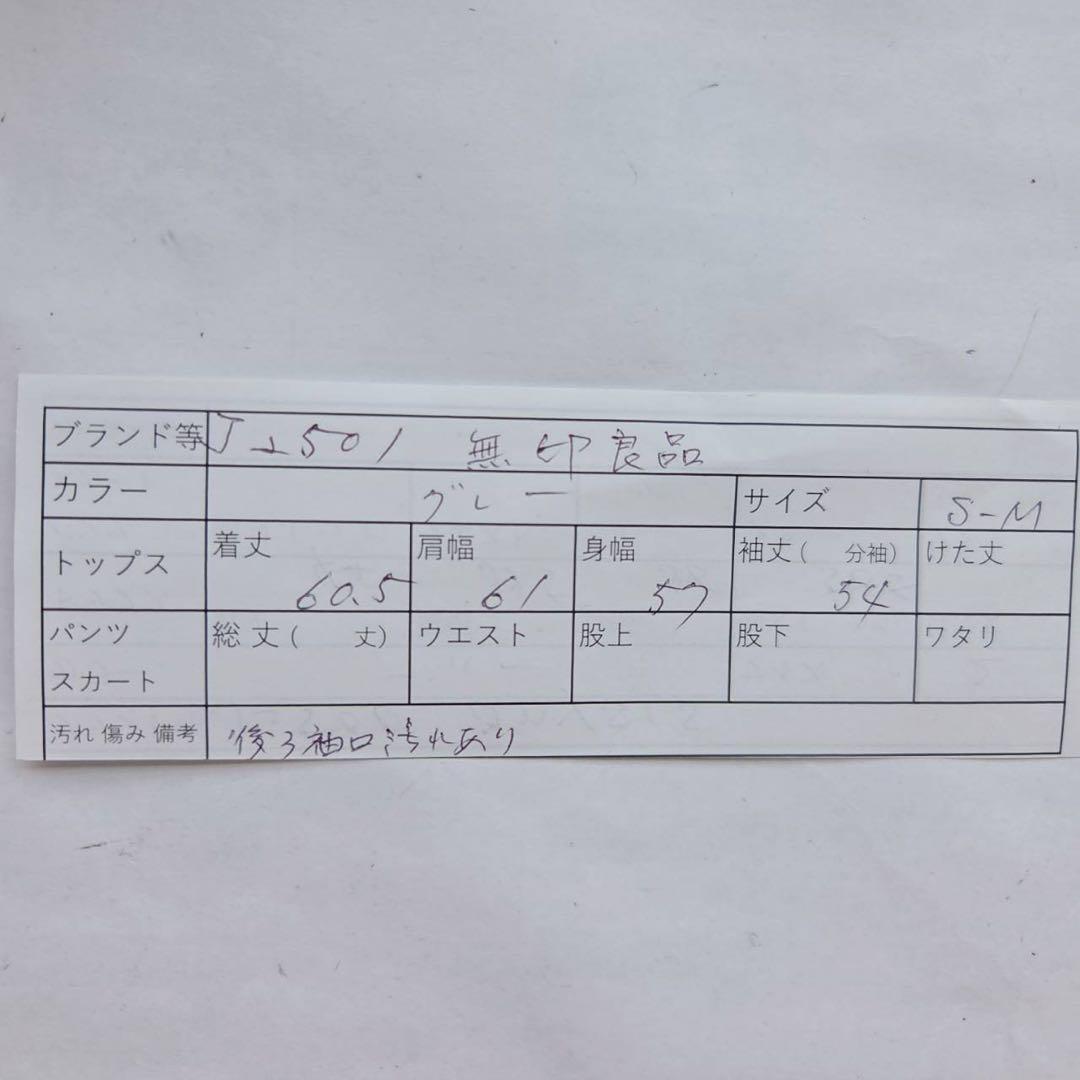 ブランド等 J↓501 無印良品
カラー グレー サイズ S-M
トップス 着丈 60.5 肩幅 61 身幅 57 袖丈( 分袖) 54 けた丈
パンツ スカート 総丈( 丈) ウエスト 股上 股下 ワタリ
汚れ 傷み 備考 後ろ袖口汚れあり